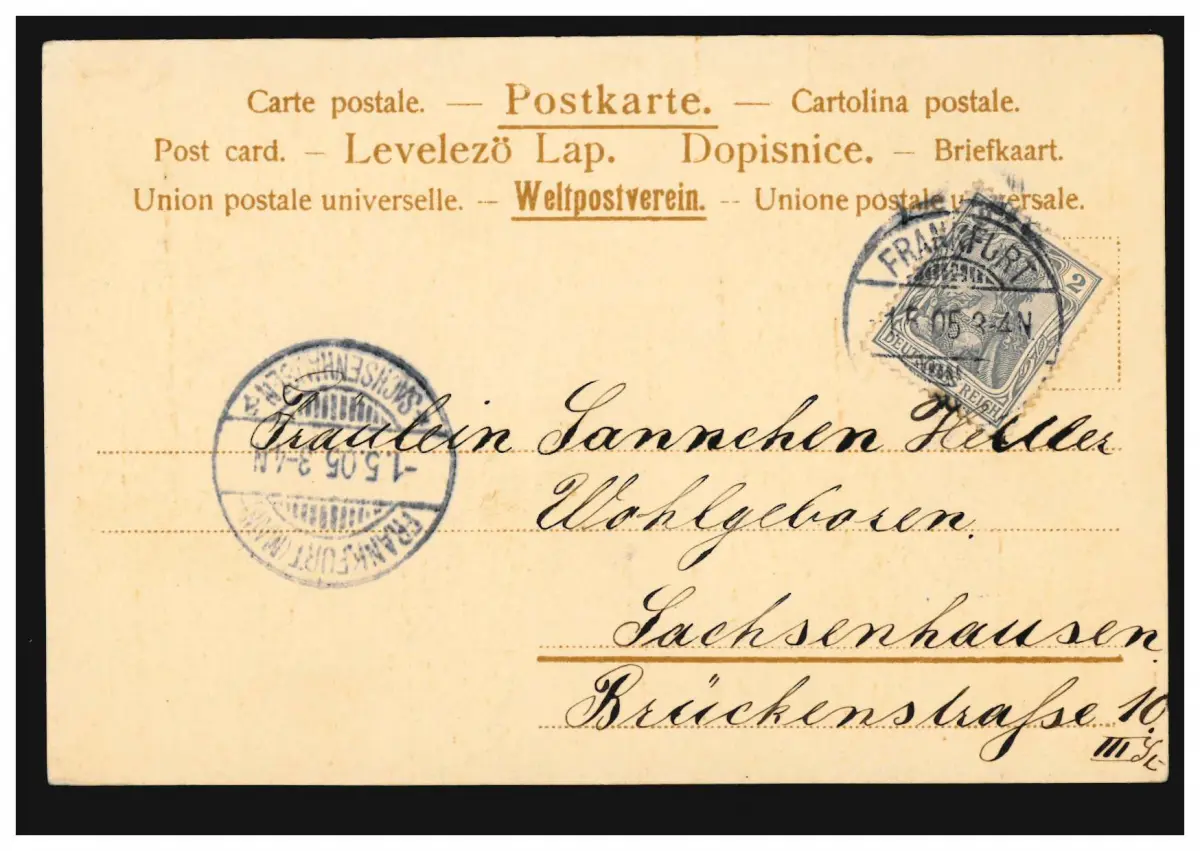 Carte postale. — Postkarte. — Cartolina postale.
Post card. – Levelező Lap. Dopisnice. – Briefkaart.
Union postale universelle. -- Weltpostverein. -- Unione postale universale.
FRANKFURT
1.5.05.3-4N
2
DEUTSCHES REICH
2
FRANKFURT (MAIN)
-1.5.05.3-4N
-SACHSENHAUSEN
Fräulein Sannchen Heller
Wohlgeboren.
Sachsenhausen.
Brückenstraſse 10.
III St